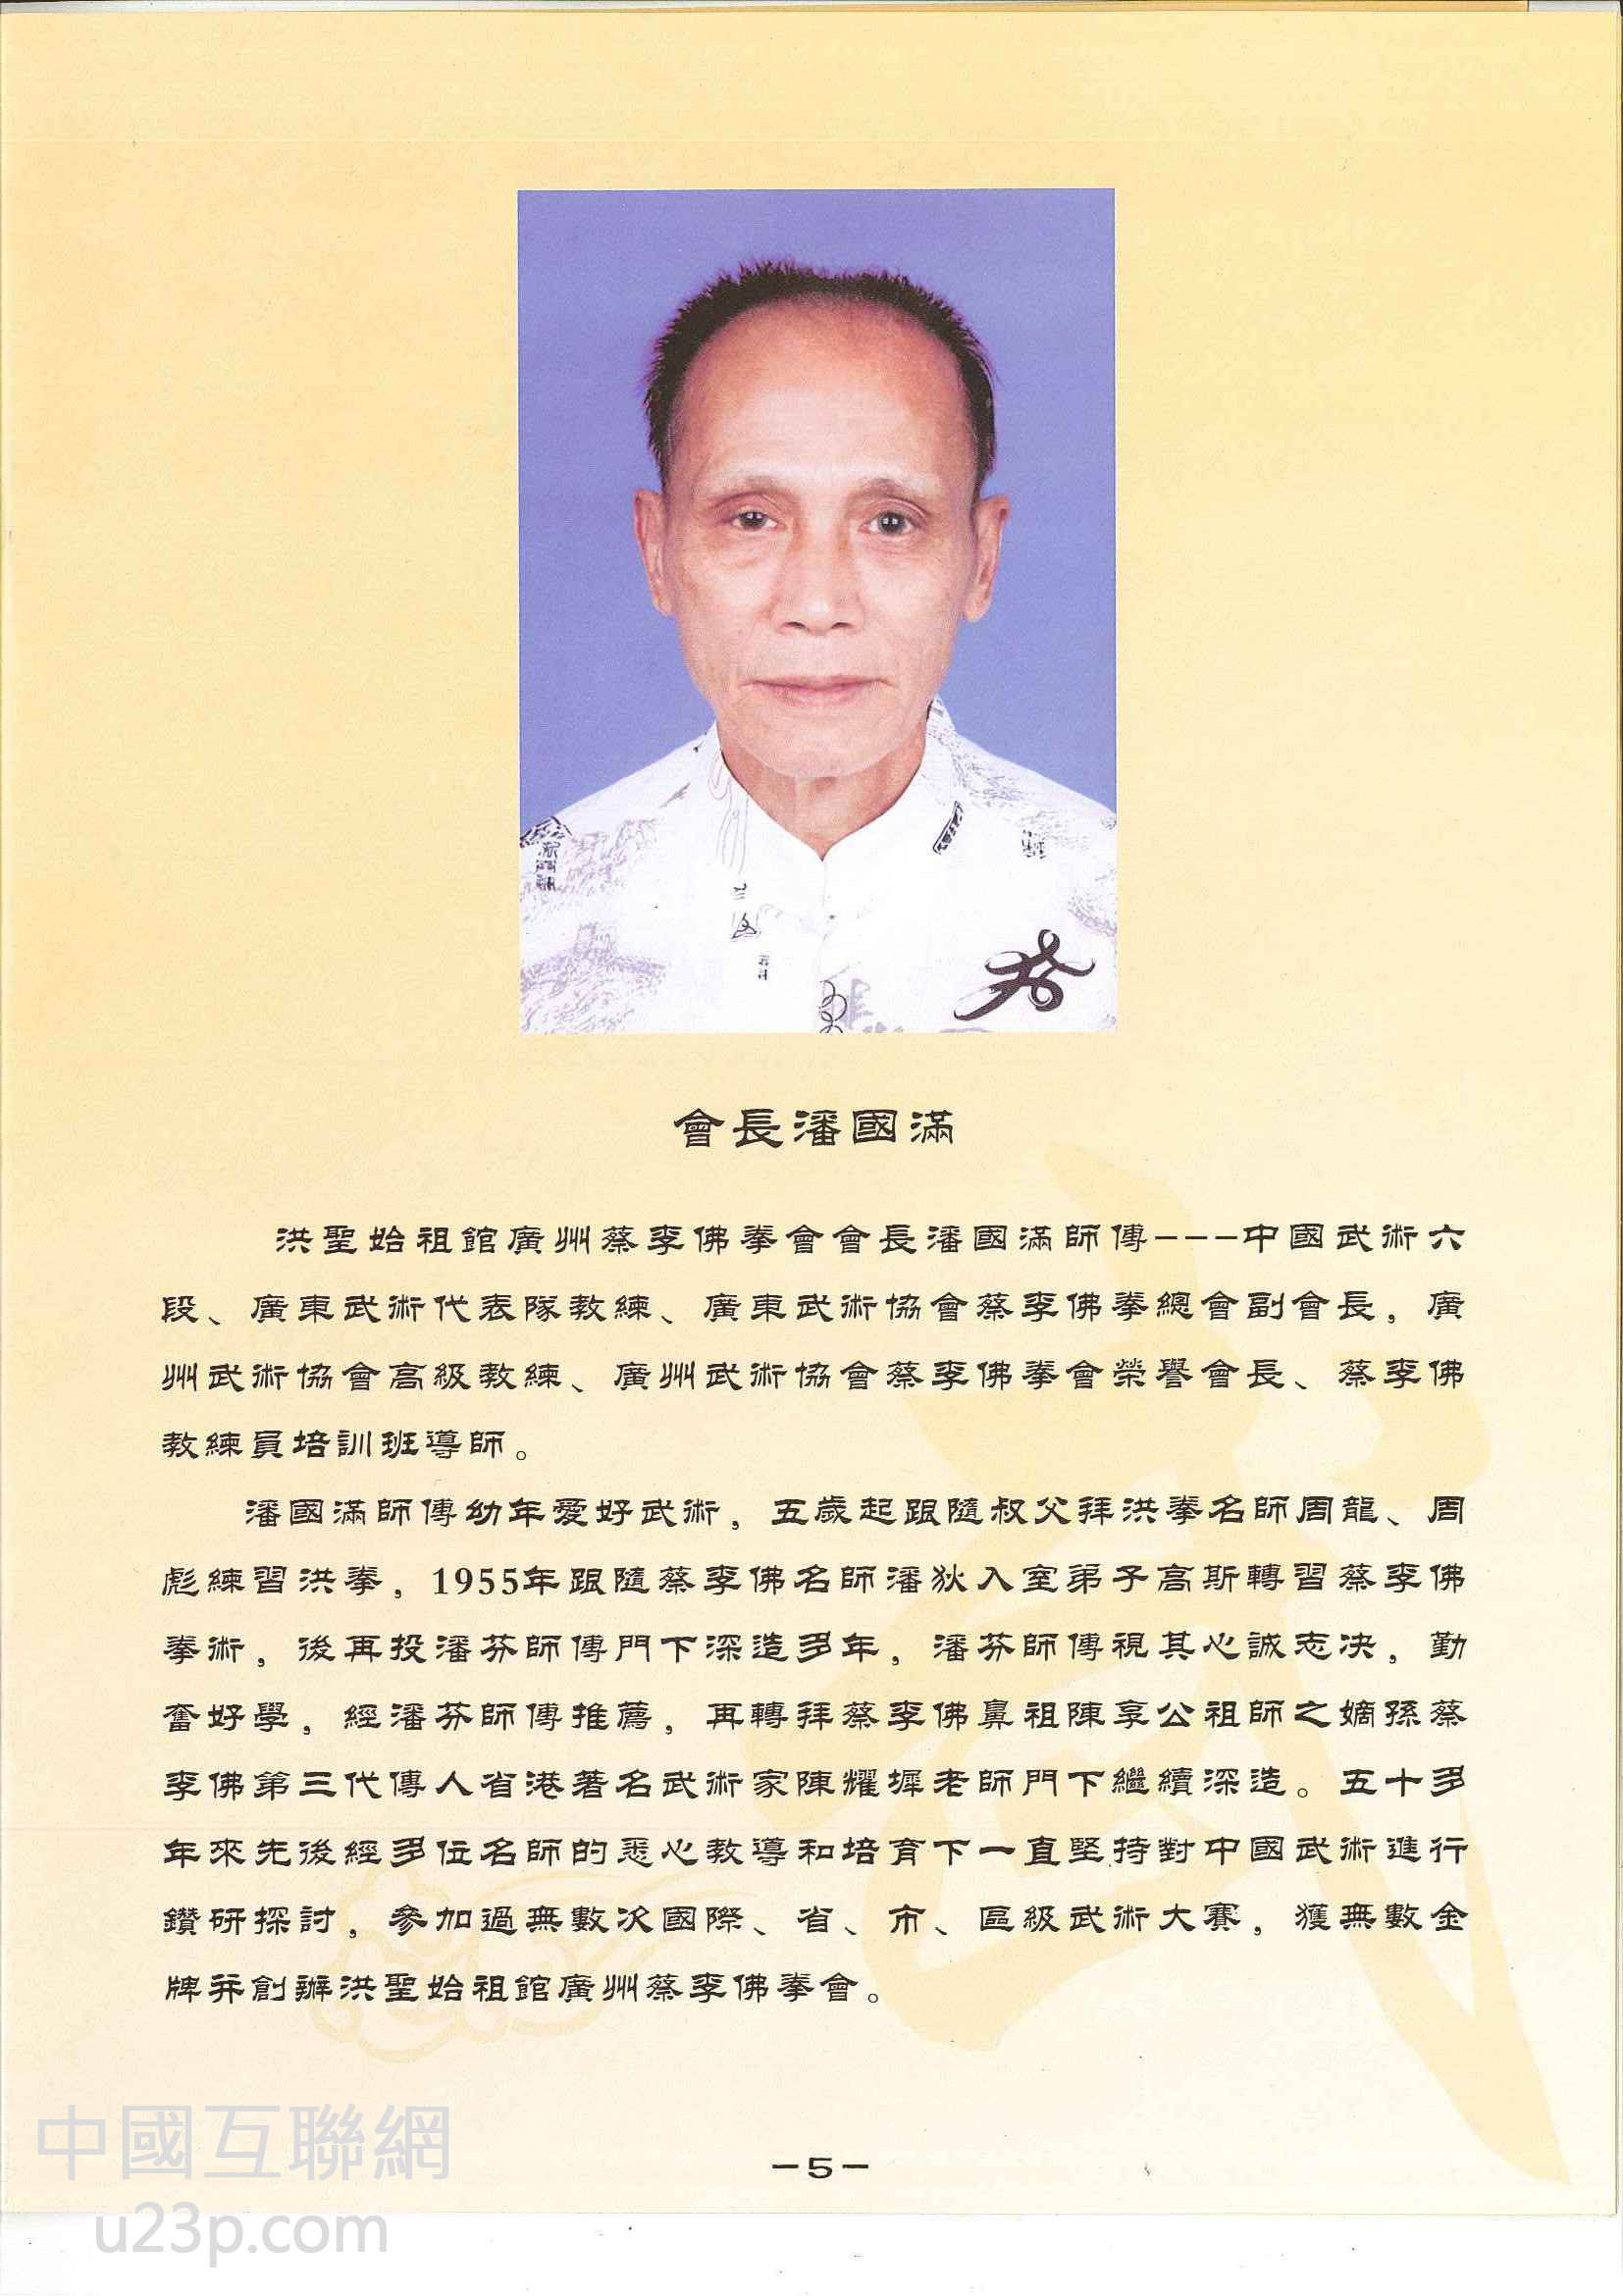 會長潘國滿
洪聖始祖館廣州蔡李佛拳會會長潘國滿師傅---中國武術六
段、廣東武術代表隊教練、廣東武術協會蔡李佛拳總會副會長，廣
州武術協會高級教練、廣州武術協會蔡李佛拳會榮譽會長、蔡李佛
教練員培訓班導師。
潘國滿師傅幼年愛好武術，五歲起跟隨叔父拜洪拳名師周龍、周
彪練習洪拳，1955年跟隨蔡李佛名師潘狄入室弟子高斯轉習蔡李佛
拳術，後再投潘芬師傅門下深造多年，潘芬師傅視其心誠志決，勤
奮好學，經潘芬師傅推薦，再轉拜蔡李佛鼻祖陳享公祖師之嫡孫蔡
李佛第三代傳人省港著名武術家陳耀墀老師門下繼續深造。五十多
年來先後經多位名師的悉心教導和培育下一直堅持對中國武術進行
鑽研探討，參加過無數次國際、省、市、區級武術大賽，獲無數金
牌并創辦洪聖始祖館廣州蔡李佛拳會。
中國互聯網
u23p.com
-5-